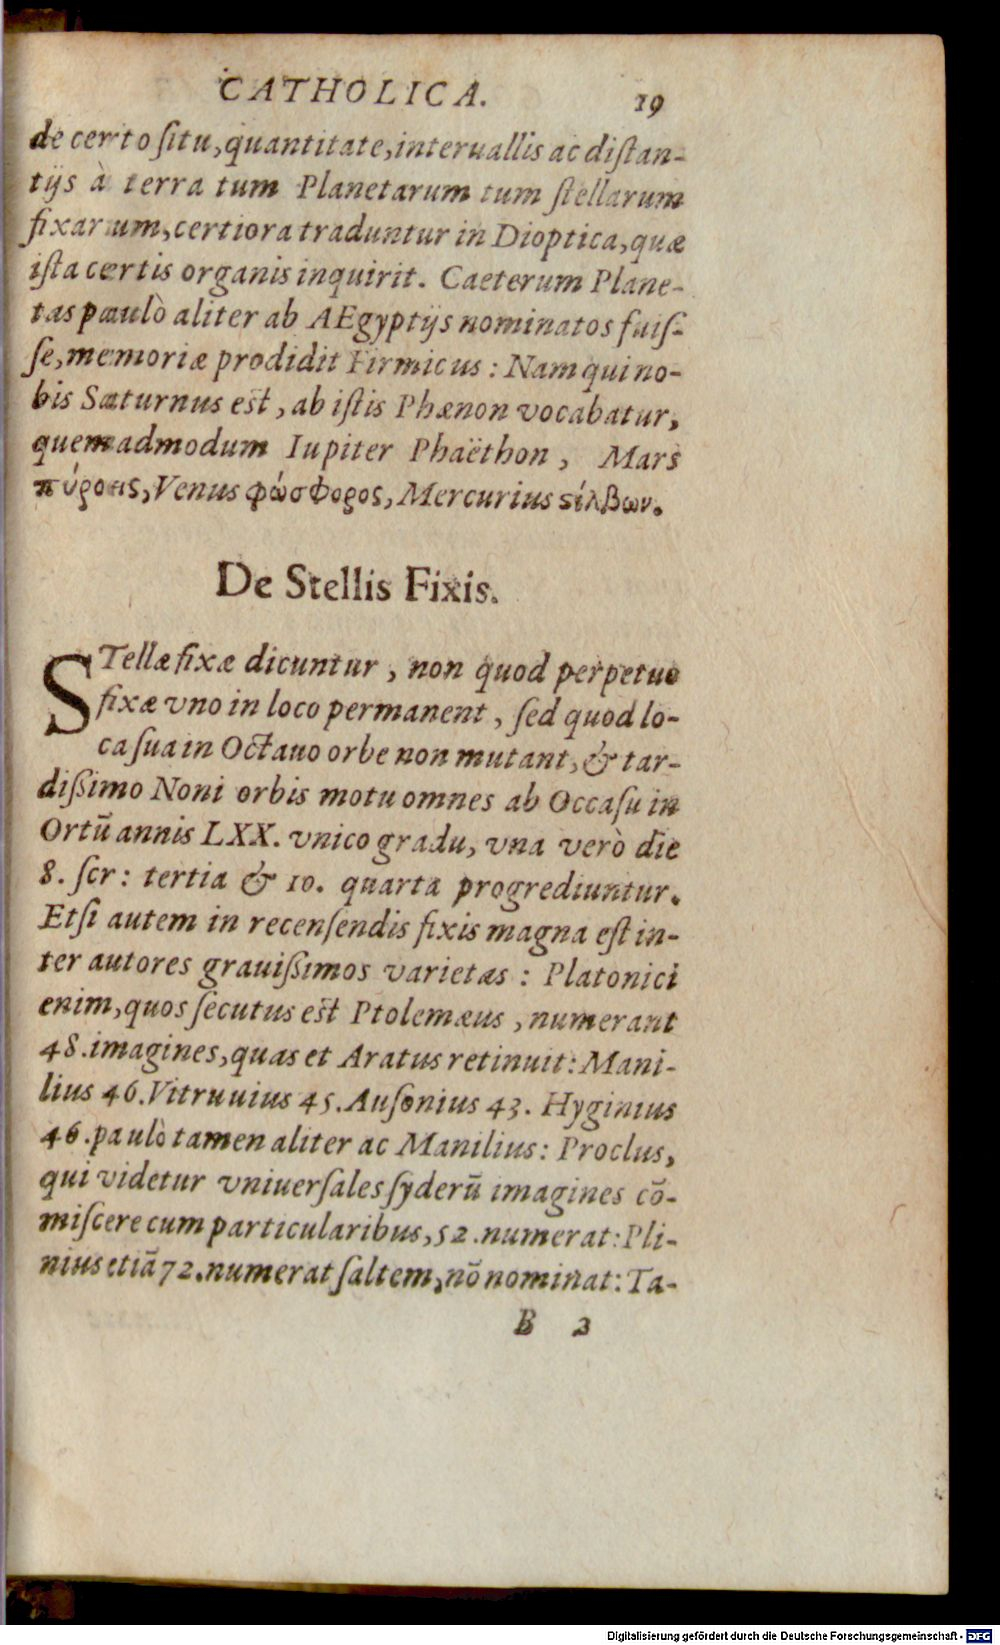 CATHOLICA. 19
de certo ſitu, quantitate, interuallis ac diſtan-
tijs à terra tum Planetarum tum ſtellarum
fixarum, certiora traduntur in Dioptica, quæ
iſta certis organis inquirit. Caeterum Plane-
tas paulò aliter ab AEgyptijs nominatos fuiſ-
ſe, memoriæ prodidit Firmicus: Nam qui no-
bis Saturnus est, ab iſtis Phænon vocabatur,
quemadmodum Iupiter Phaëthon, Mars
πύροεις, Venus φώσφορος, Mercurius ϛίλβων.
De Stellis Fixis.
STellæ fixæ dicuntur, non quod perpetuo
fixæ vno in loco permanent, ſed quod lo-
ca ſua in Octauo orbe non mutant, & tar-
dißimo Noni orbis motu omnes ab Occaſu in
Ortū annis LXX. vnico gradu, vna verò die
8. ſcr: tertia & 10. quarta progrediuntur.
Etſi autem in recenſendis fixis magna eſt in-
ter autores grauißimos varietas: Platonici
enim, quos ſecutus est Ptolemæus, numerant
48. imagines, quas et Aratus retinuit: Mani-
lius 46. Vitruuius 45. Auſonius 43. Hyginius
46. paulò tamen aliter ac Manilius: Proclus,
qui videtur vniuerſales ſyderū imagines cō-
miſcere cum particularibus, 52. numerat: Pli-
nius etiā 72. numerat ſaltem, nō nominat: Ta-
B 2
Digitalisierung gefördert durch die Deutsche Forschungsgemeinschaft - DFG